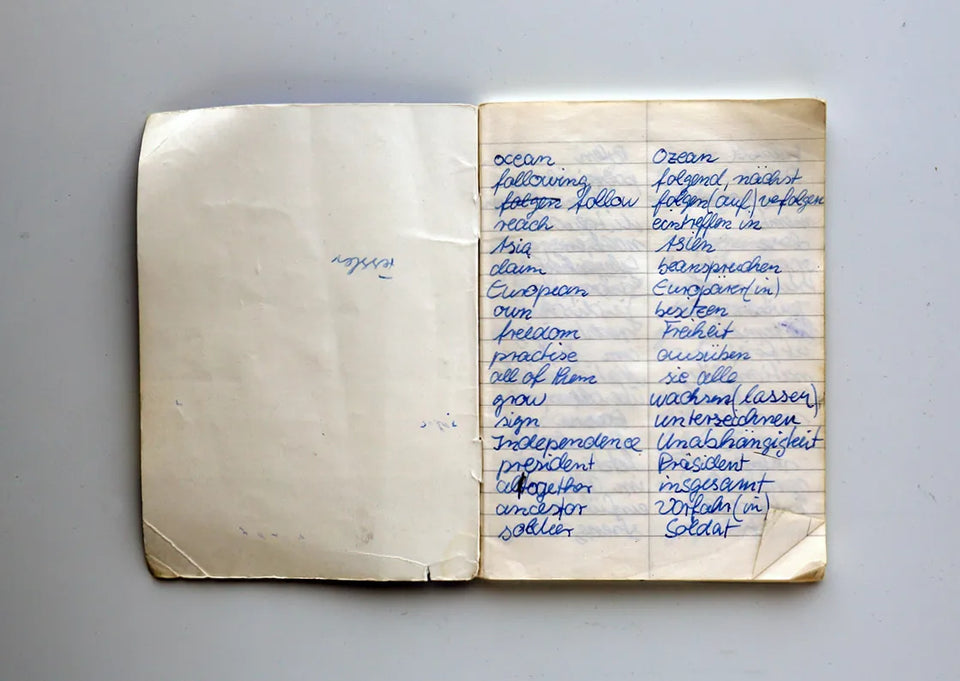 Tessler
ocean Ozean
following folgend, nächst
folgen follow folgen (auf) verfolgen
reach eintreffen in
Asia Asien
claim beanspruchen
European Europäer(in)
own besitzen
freedom Freiheit
practise ausüben
all of them sie alle
grow wachsen (lassen)
sign unterzeichnen
Independence Unabhängigkeit
president Präsident
altogether insgesamt
ancestor Vorfahr(in)
soldier Soldat